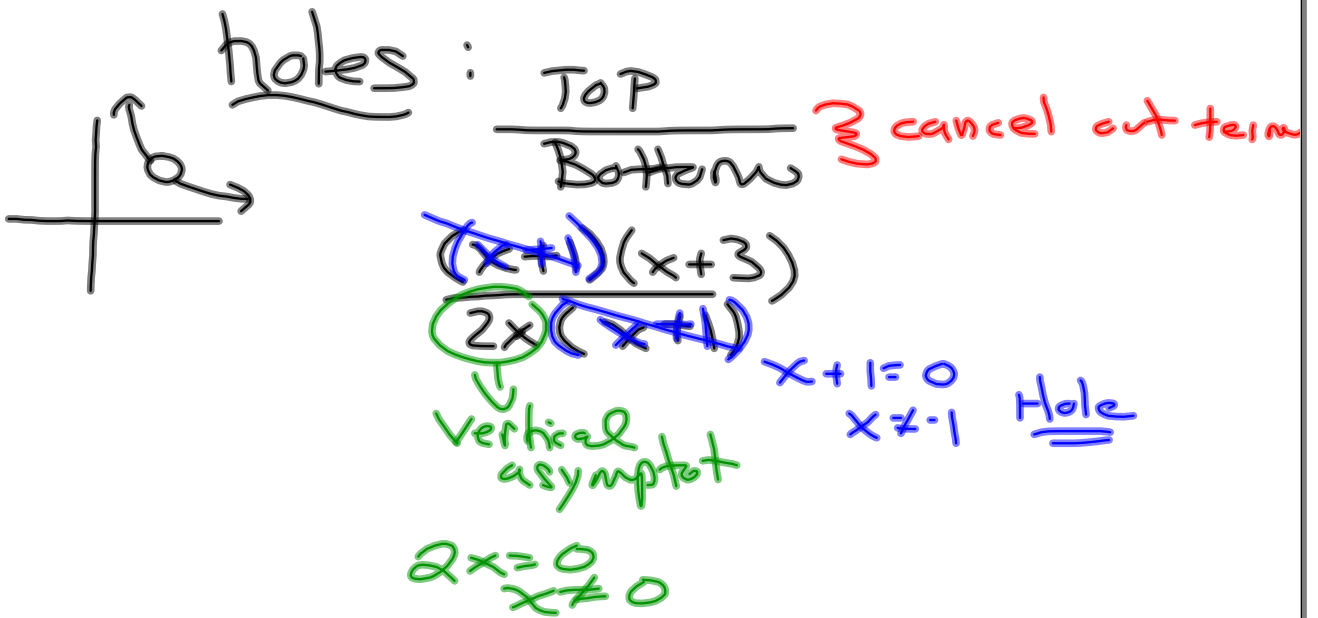 holes :
TOP
Bottom
} cancel out term
(x+1)(x+3)
2x(x+1)
x+1=0
x≠-1 Hole
vertical
asymptot
2x=0
x≠0